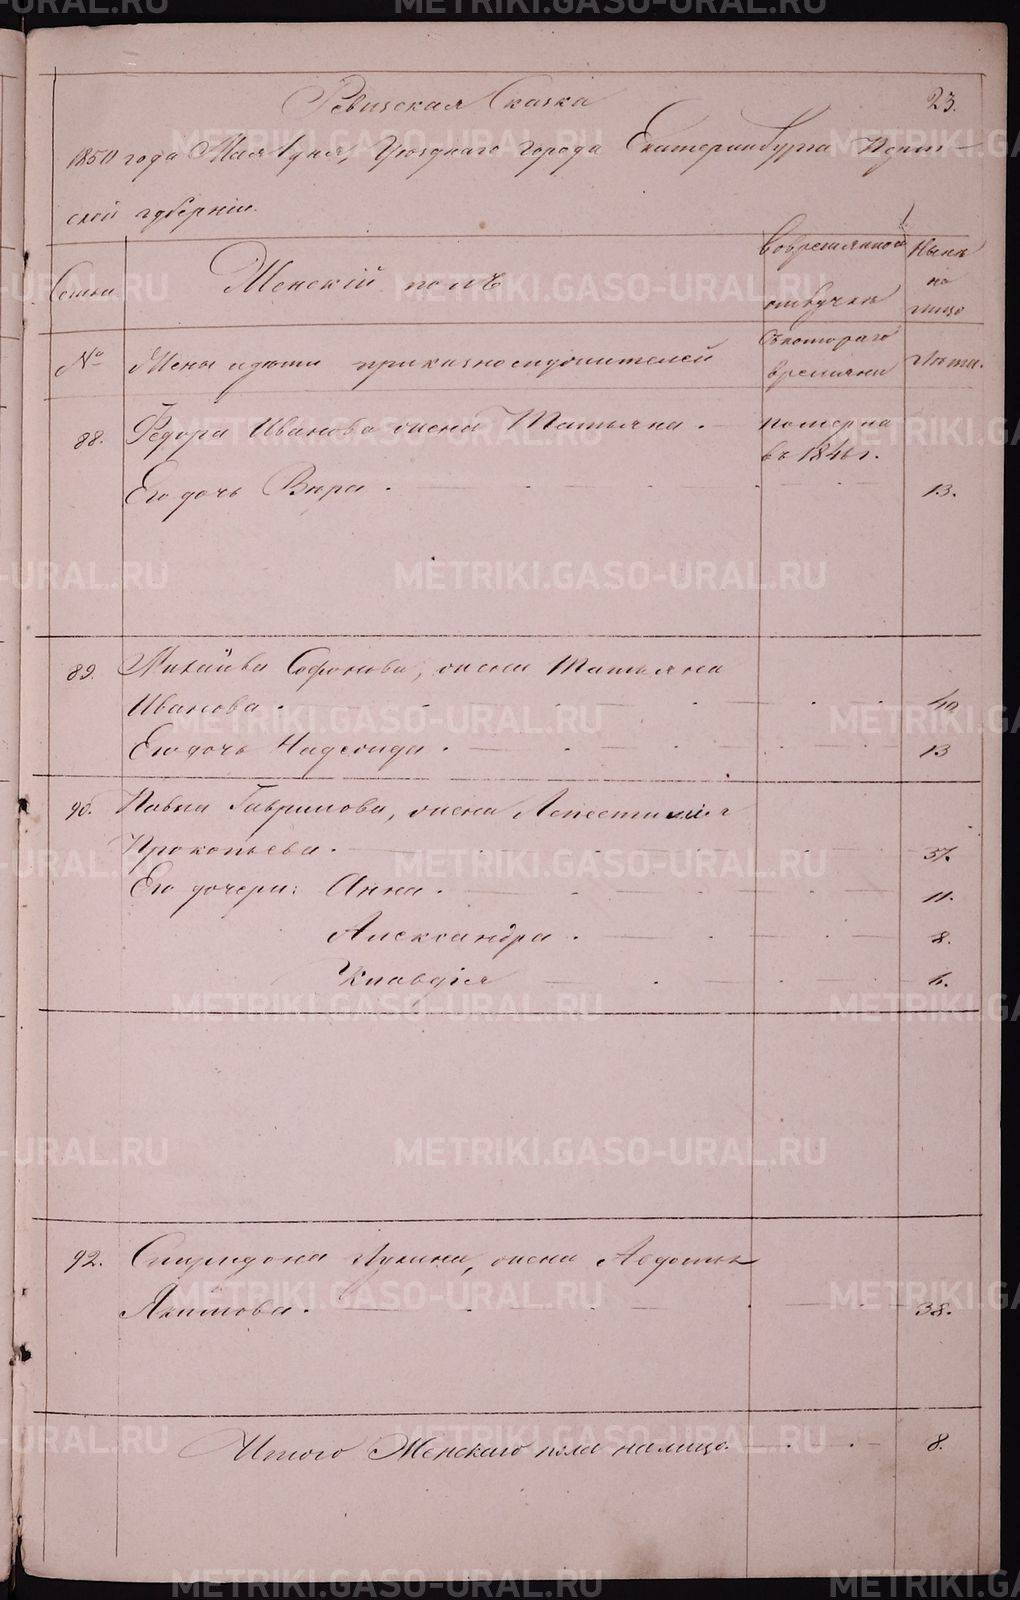 Ревизская Сказка
23.
1850 года Мая дня, Уезднаго города Екатеринбурга Перм-
ской губернiи.
Семьи
Женскiй полъ
Во временной отлучкѣ
Нынѣ на лицо
№
Жены и дѣти приказнослужителей
Съ котораго времяни
Лѣта.
88.
Федора Иванова жена Татьяна.
померла въ 1846 г.
Его дочь Вѣра.
13.
89.
Михайла Софонова, жена Татьяна
Иванова.
40
Его дочь Надежида.
13
90.
Павла Гаврилова, жена
Прокопьева.
37.
Его дочери: Анна.
11.
Александра.
8.
Клавдiя
6.
92.
Спиридона Лукина, жена Авдотья
Якимова.
38.
Итого Женскаго пола на лицо.
8.
METRIKI.GASO-URAL.RU